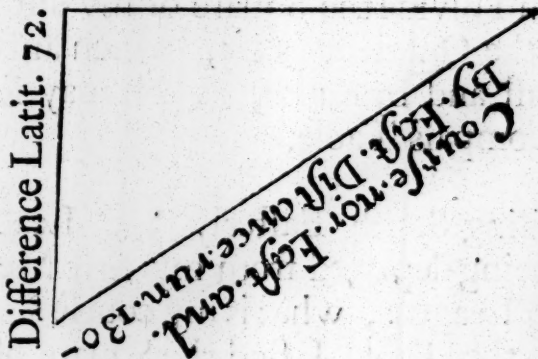 Difference Latit. 72.
Courſe.nor.Eaſt.and.
By.Eaſt.Diſtance.run.130-